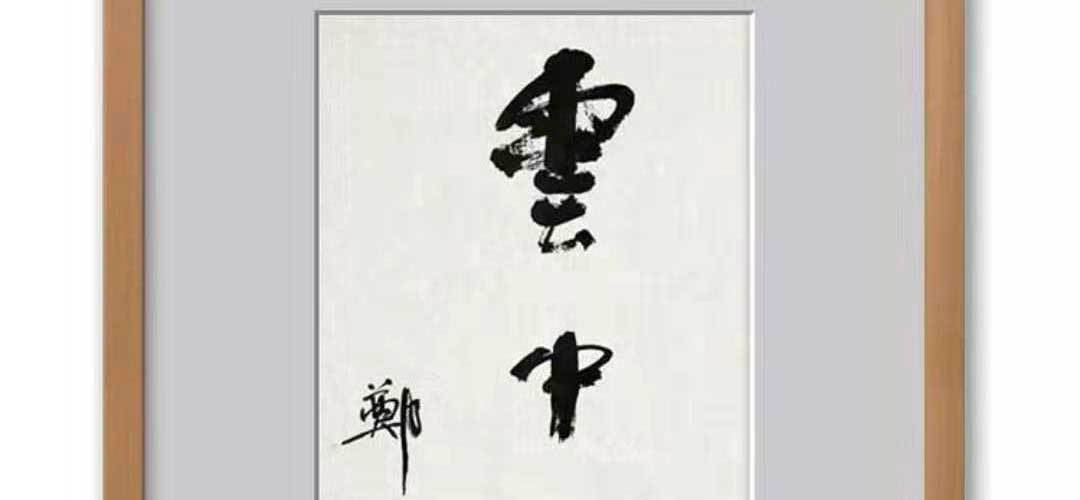 雲中
鄭